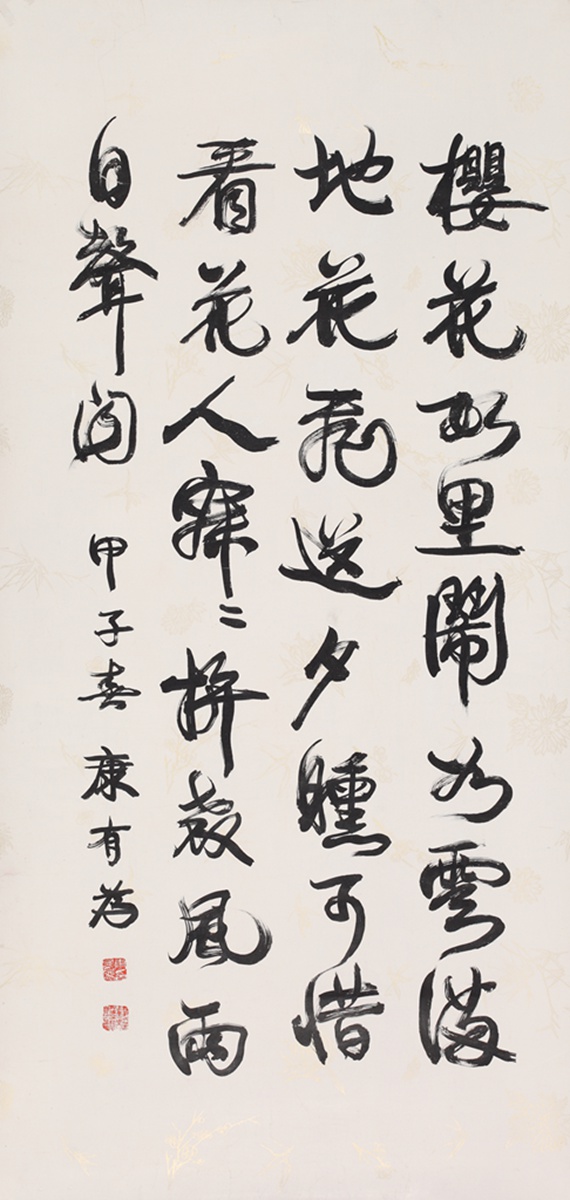 櫻花里鬧如雲滿
地花飛送夕曛可惜
看花人寂〻拚教風雨
自聲聞 甲子春 康有為